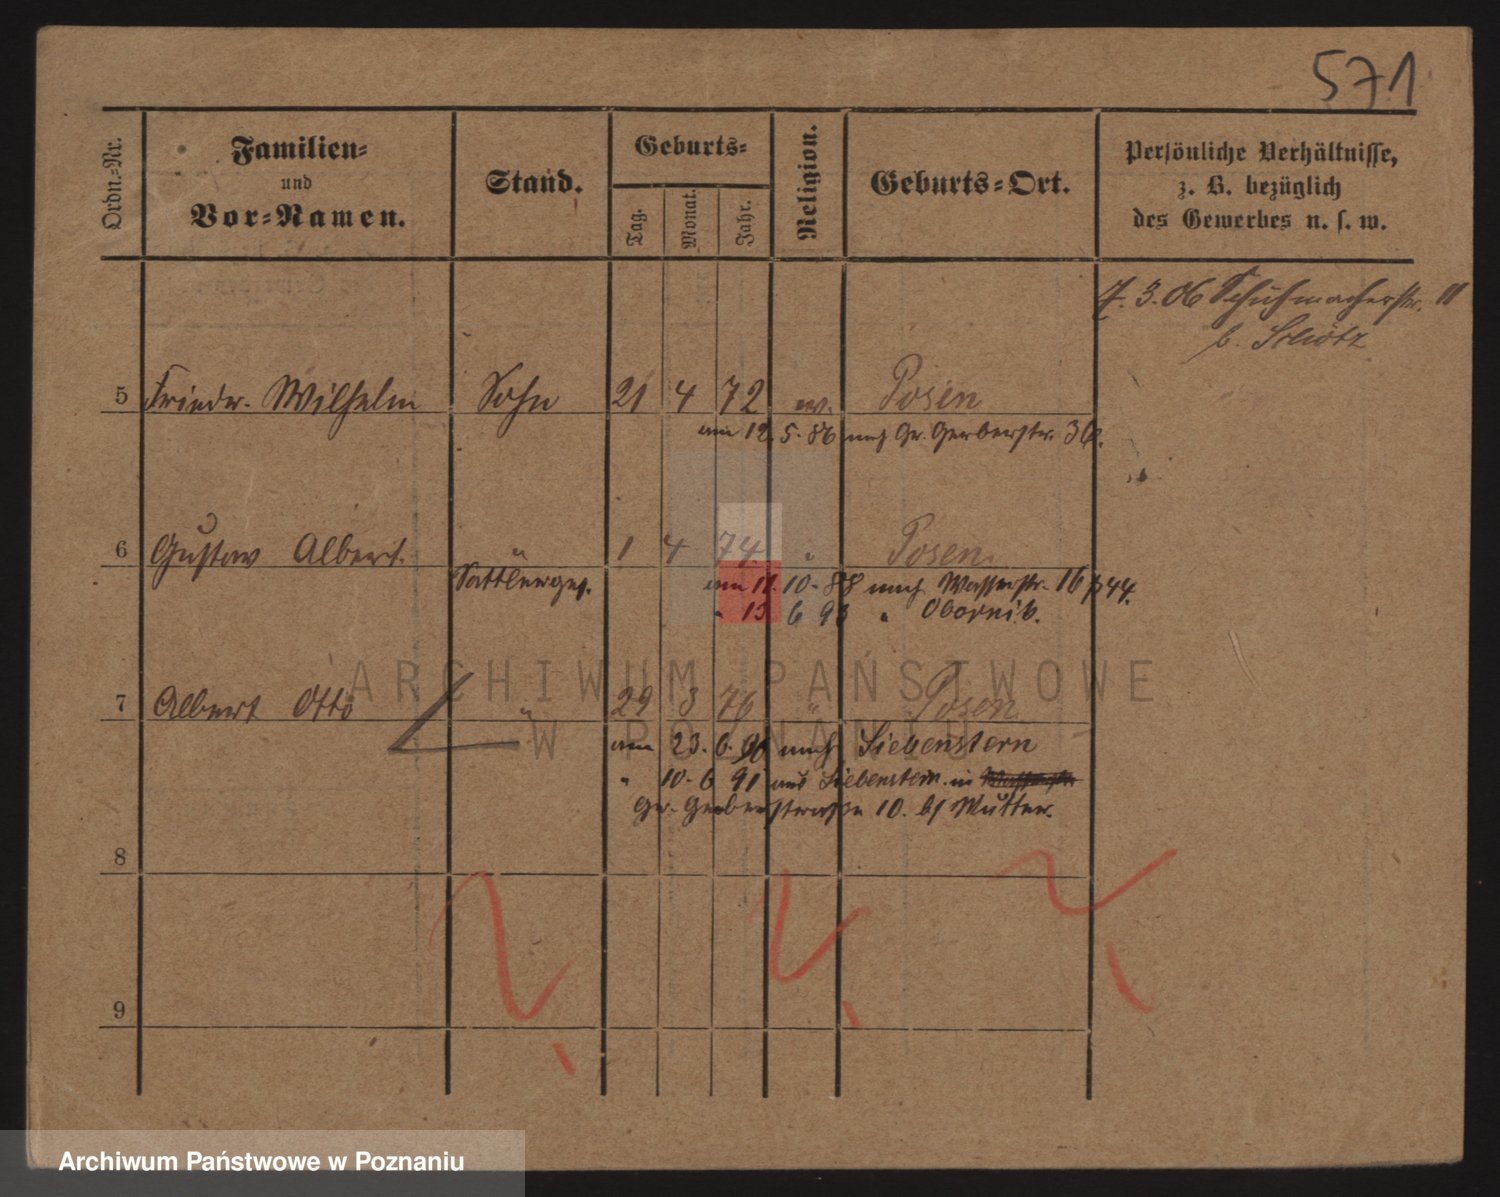 571
Ordn.-Nr.
Familien-
und
Vor-Namen.
Stand.
Geburts-
Tag.
Monat.
Jahr.
Religion.
Geburts-Ort.
Persönliche Verhältnisse,
z. B. bezüglich
des Gewerbes u. s. w.
7. 3. 06 Schuhmacherstr. 11
b.
5 Friedr. Wilhelm Sohn 21 4 72 ev. Posen
am 12. 5. 86 nach Gr. Gerberstr. 36.
6 Gustav Albert. " 1 4 74. " Posen.
Sattlerges. am 11. 10. 88 nach Wasserstr. 16
" 13 6 93 " Obornik.
7 Albert Otto " 29 3 76 " Posen
am 23. 6. 90 nach Liebenstern
" 10. 6 91 aus Liebenstern in
Gr. Gerberstraße 10. bf Mutter.
8
9
ARCHIWUM PAŃSTWOWE
W POZNANIU
Archiwum Państwowe w Poznaniu